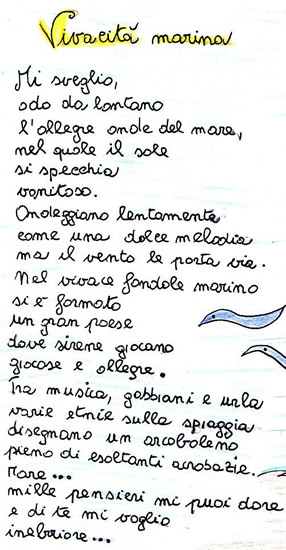 Vivacità marina
Mi sveglio,
odo da lontano
l'allegre onde del mare,
nel quale il sole
si specchia
vanitoso.
Ondeggiano lentamente
come una dolce melodia
ma il vento le porta via.
Nel vivace fondale marino
si è formato
un gran paese
dove sirene giocano
giocose e allegre.
Tra musica, gabbiani e urla
varie etnie sulla spiaggia
disegnano un arcobaleno
pieno di esaltanti acrobazie.
Mare...
mille pensieri mi puoi dare
e di te mi voglio
inebriare...